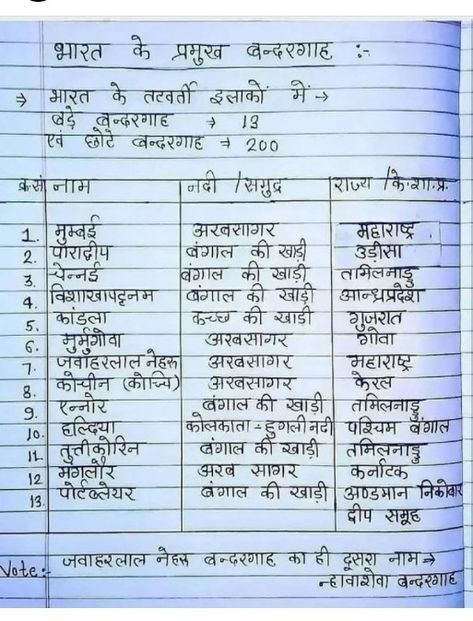 भारत के प्रमुख बन्दरगाह :-
→ भारत के तटवर्ती इलाकों में →
बड़े बन्दरगाह → 13
एवं छोटे बन्दरगाह → 200
क्र.सं नाम नदी / समुद्र राज्य / के.शा.प्र.
1. मुम्बई अरबसागर महाराष्ट्र
2. पाराद्वीप बंगाल की खाड़ी उड़ीसा
3. चेन्नई बंगाल की खाड़ी तामिलनाडु
4. विशाखापट्टनम बंगाल की खाड़ी आन्ध्रप्रदेश
5. कांडला कच्छ की खाडी गुजरात
6. मुर्मुगोवा अरबसागर गोवा
7. जवाहरलाल नेहरू अरबसागर महाराष्ट्र
8. कोचीन (कोच्चि) अरबसागर केरल
9. एन्नोर बंगाल की खाड़ी तमिलनाडु
10. हल्दिया कोलकाता - हुगली नदी पश्चिम बंगाल
11. तुतीकोरिन बंगाल की खाड़ी तमिलनाडु
12 मंगलौर अरब सागर कर्नाटक
13. पोर्टब्लेयर बंगाल की खाड़ी अण्डमान निकोबार
द्वीप समूह
Note:- जवाहरलाल नेहरू बन्दरगाह का ही दूसरा नाम →
न्हावाशेवा बन्दरगाह